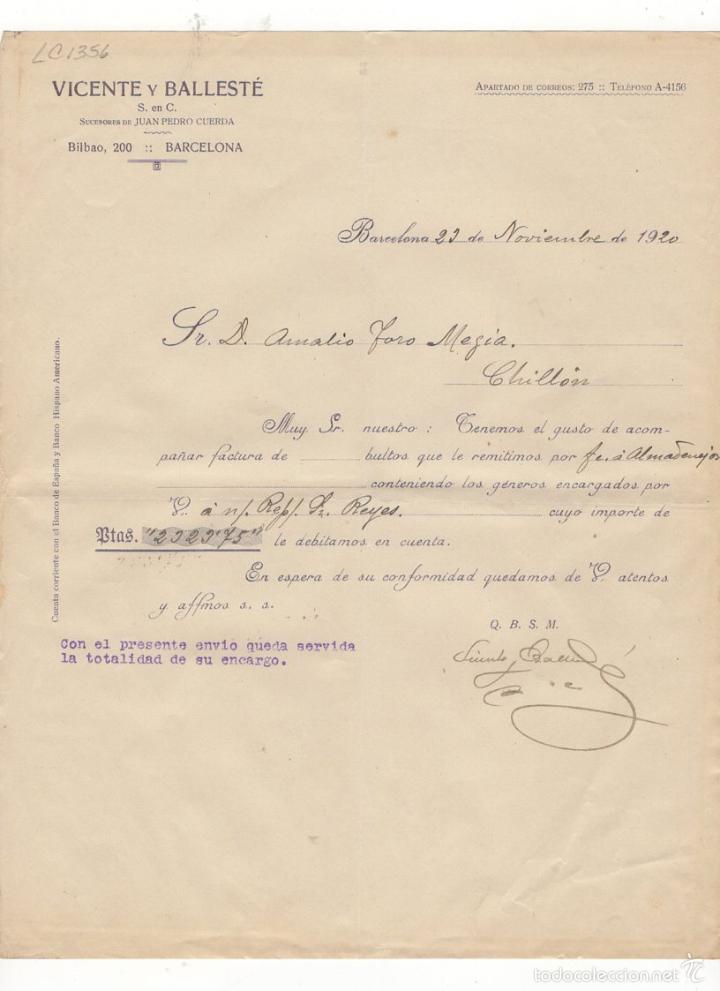 LC1356
VICENTE Y BALLESTÉ
S. en C.
SUCESORES DE JUAN PEDRO CUERDA
Bilbao, 200 :: BARCELONA
APARTADO DE CORREOS: 275 :: TELÉFONO A-4156
Barcelona 23 de Noviembre de 1920
Sr. D. Amalio Toro Megia.
Chillón
Muy Sr. nuestro: Tenemos el gusto de acom-
pañar factura de bultos que le remitimos por fc. á Almadenejos
conteniendo los géneros encargados por
V. á n/. Rep/. Sr. Reyes. cuyo importe de
Ptas. "2323'75" le debitamos en cuenta.
En espera de su conformidad quedamos de V. atentos
y affmos s. s.
Q. B. S. M.
Con el presente envio queda servida
la totalidad de su encargo.
Cuenta corriente con el Banco de España y Banco Hispano Americano.
todocoleccion.net